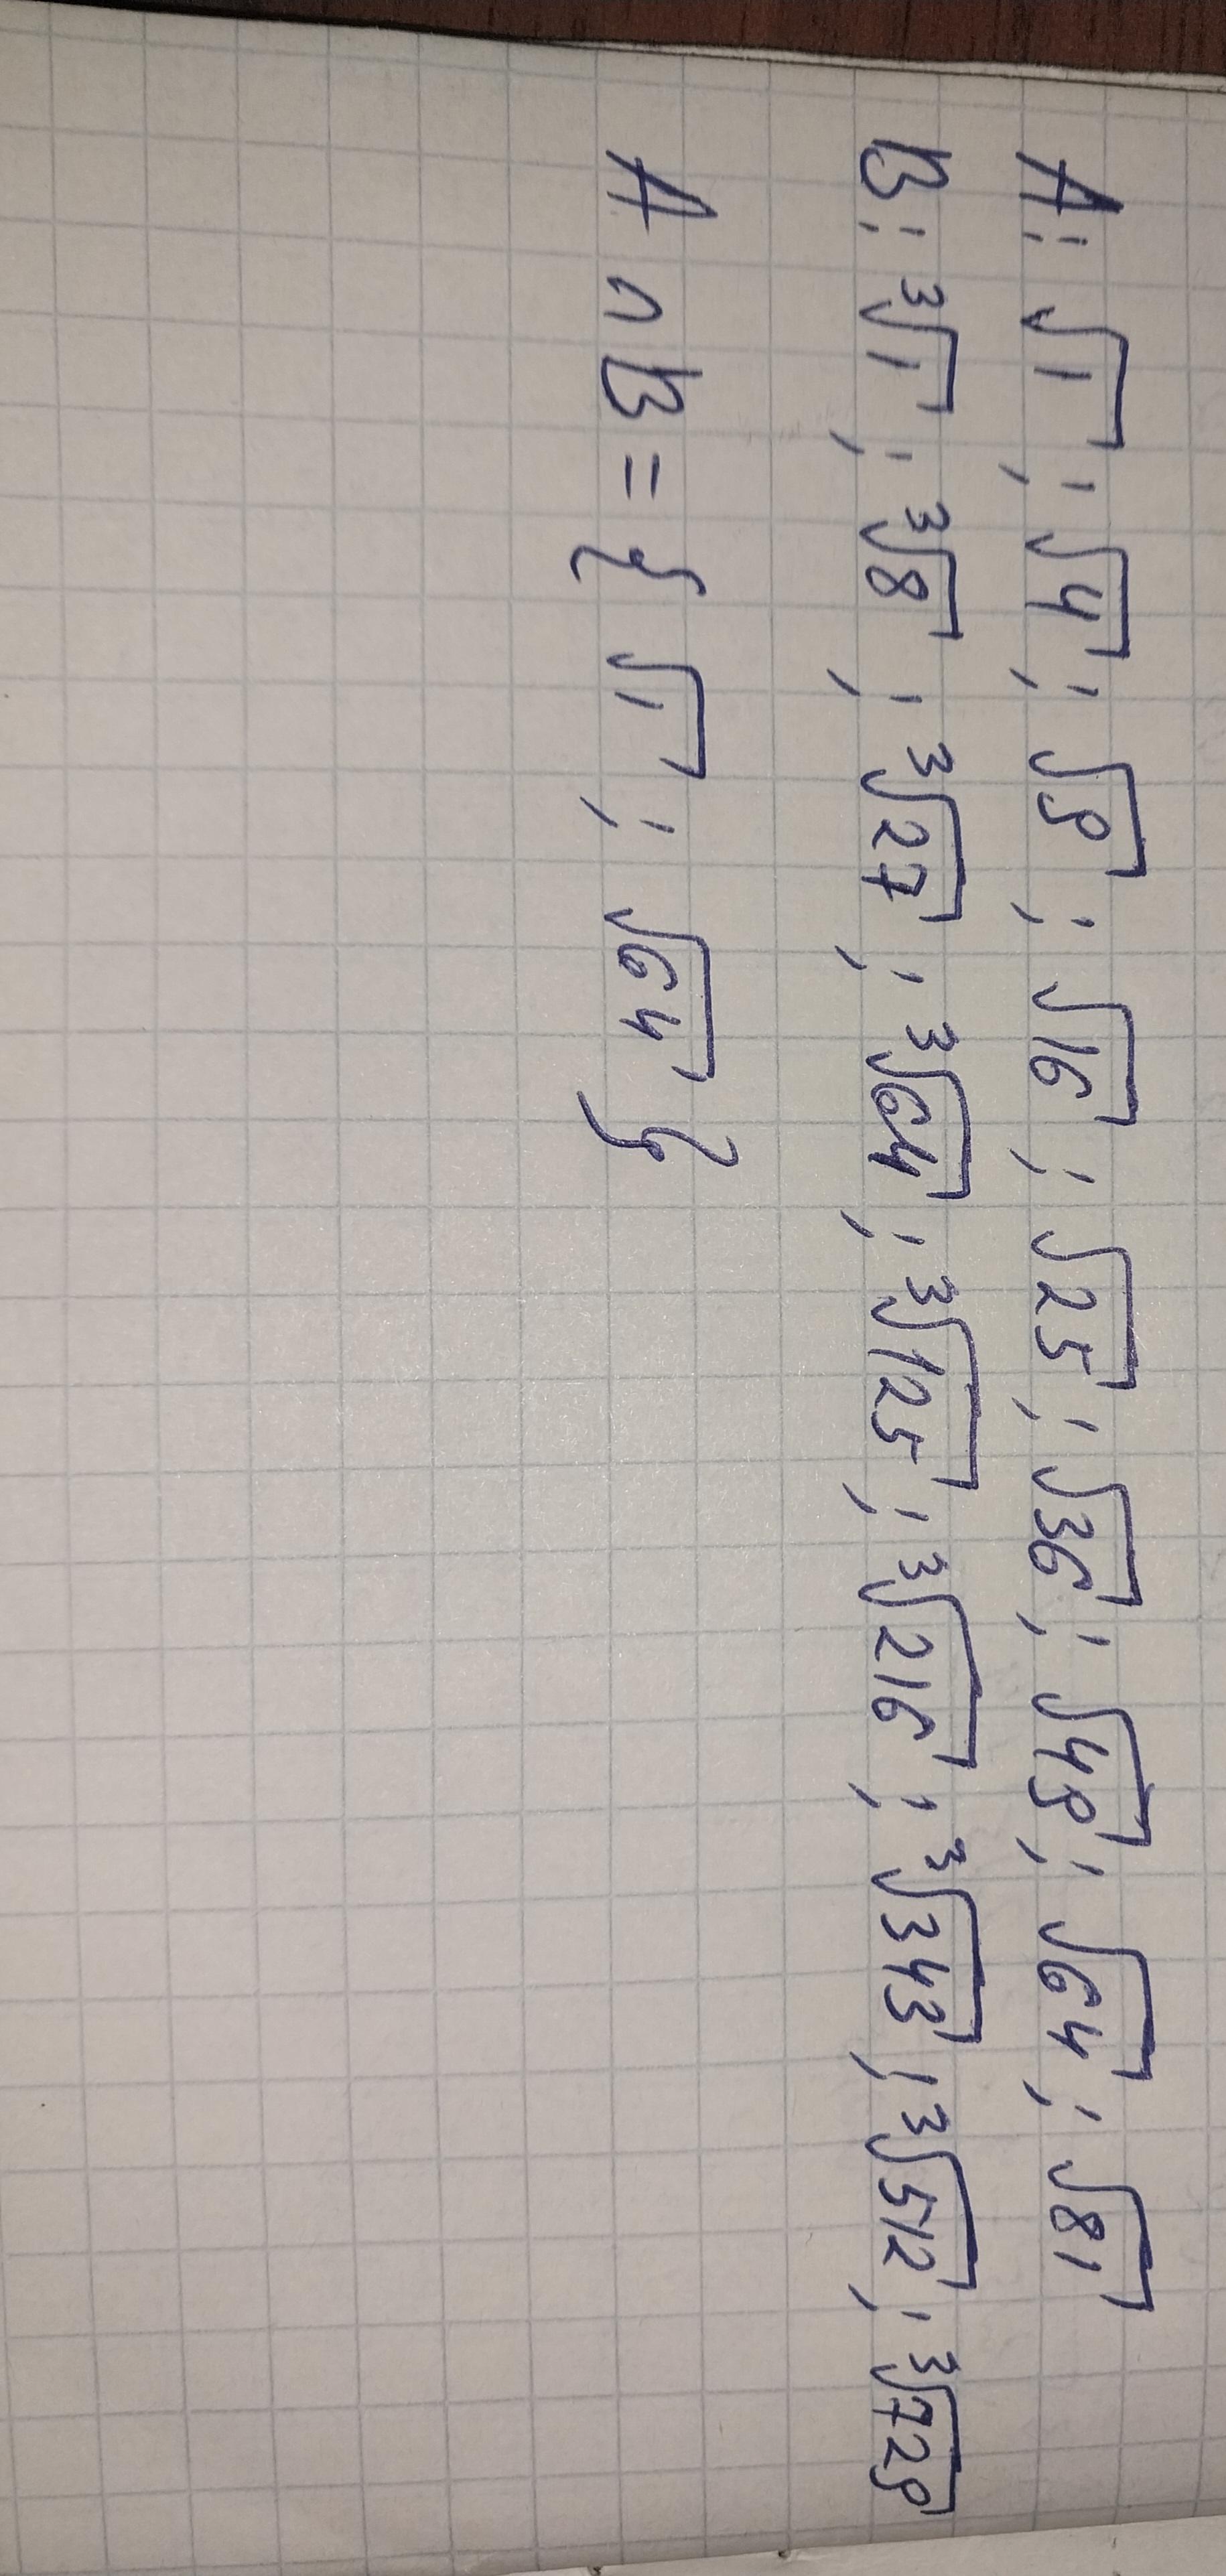 A: √1 ; √4 ; √9 ; √16 ; √25 ; √36 ; √49 ; √64 ; √81
B: ³√1 ; ³√8 ; ³√27 ; ³√64 ; ³√125 ; ³√216 ; ³√343 ; ³√512 ; ³√729
A ∩ B = { √1 ; √64 }